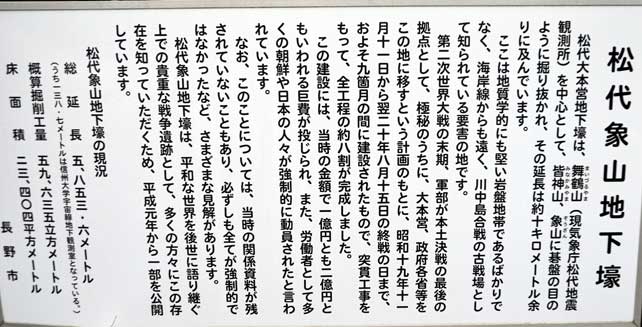 松代象山地下壕
松代大本営地下壕は、舞鶴山（現気象庁松代地震
観測所）を中心として、皆神山、象山に碁盤の目の
ように掘り抜かれ、その延長は約十キロメートル余
りに及んでいます。
ここは地質学的にも堅い岩盤地帯であるばかりで
なく、海岸線からも遠く、川中島合戦の古戦場とし
て知られている要害の地です。
第二次世界大戦の末期、軍部が本土決戦の最後の
拠点として、極秘のうちに、大本営、政府各省等を
この地に移すという計画のもとに、昭和十九年十一
月十一日から翌二十年八月十五日の終戦の日まで、
およそ九箇月の間に建設されたもので、突貫工事を
もって、全工程の約八割が完成しました。
この建設には、当時の金額で一億円とも二億円と
もいわれる巨費が投じられ、また、労働者として多
くの朝鮮や日本の人々が強制的に動員されたと言わ
れています。
なお、このことについては、当時の関係資料が残
されていないこともあり、必ずしも全てが強制的で
はなかったなど、さまざまな見解があります。
松代象山地下壕は、平和な世界を後世に語り継ぐ
上での貴重な戦争遺跡として、多くの方々にこの存
在を知っていただくため、平成元年から一部を公開
しています。
松代象山地下壕の現況
総延長 五、八五三・六メートル
（うち一三八・七メートルは信州大学宇宙線地下観測室となっている。）
概算掘削土量 五九、六三五立方メートル
床面積 二三、四〇四平方メートル
長野市